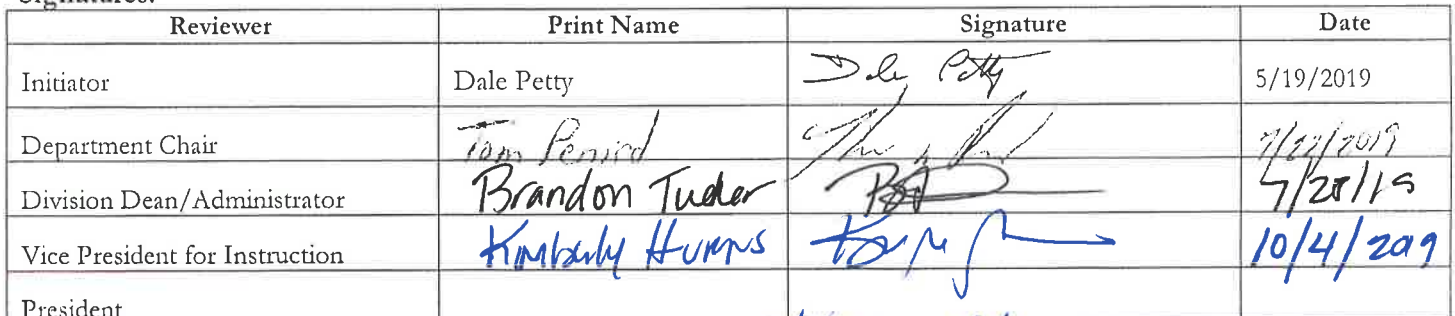 Signatures:
Reviewer Print Name Signature Date
Initiator Dale Petty Dale Petty 5/19/2019
Department Chair Tom Penird 7/22/2019
Division Dean/Administrator Brandon Tucker 7/28/19
Vice President for Instruction Kimberly Hurns 10/4/2019
President